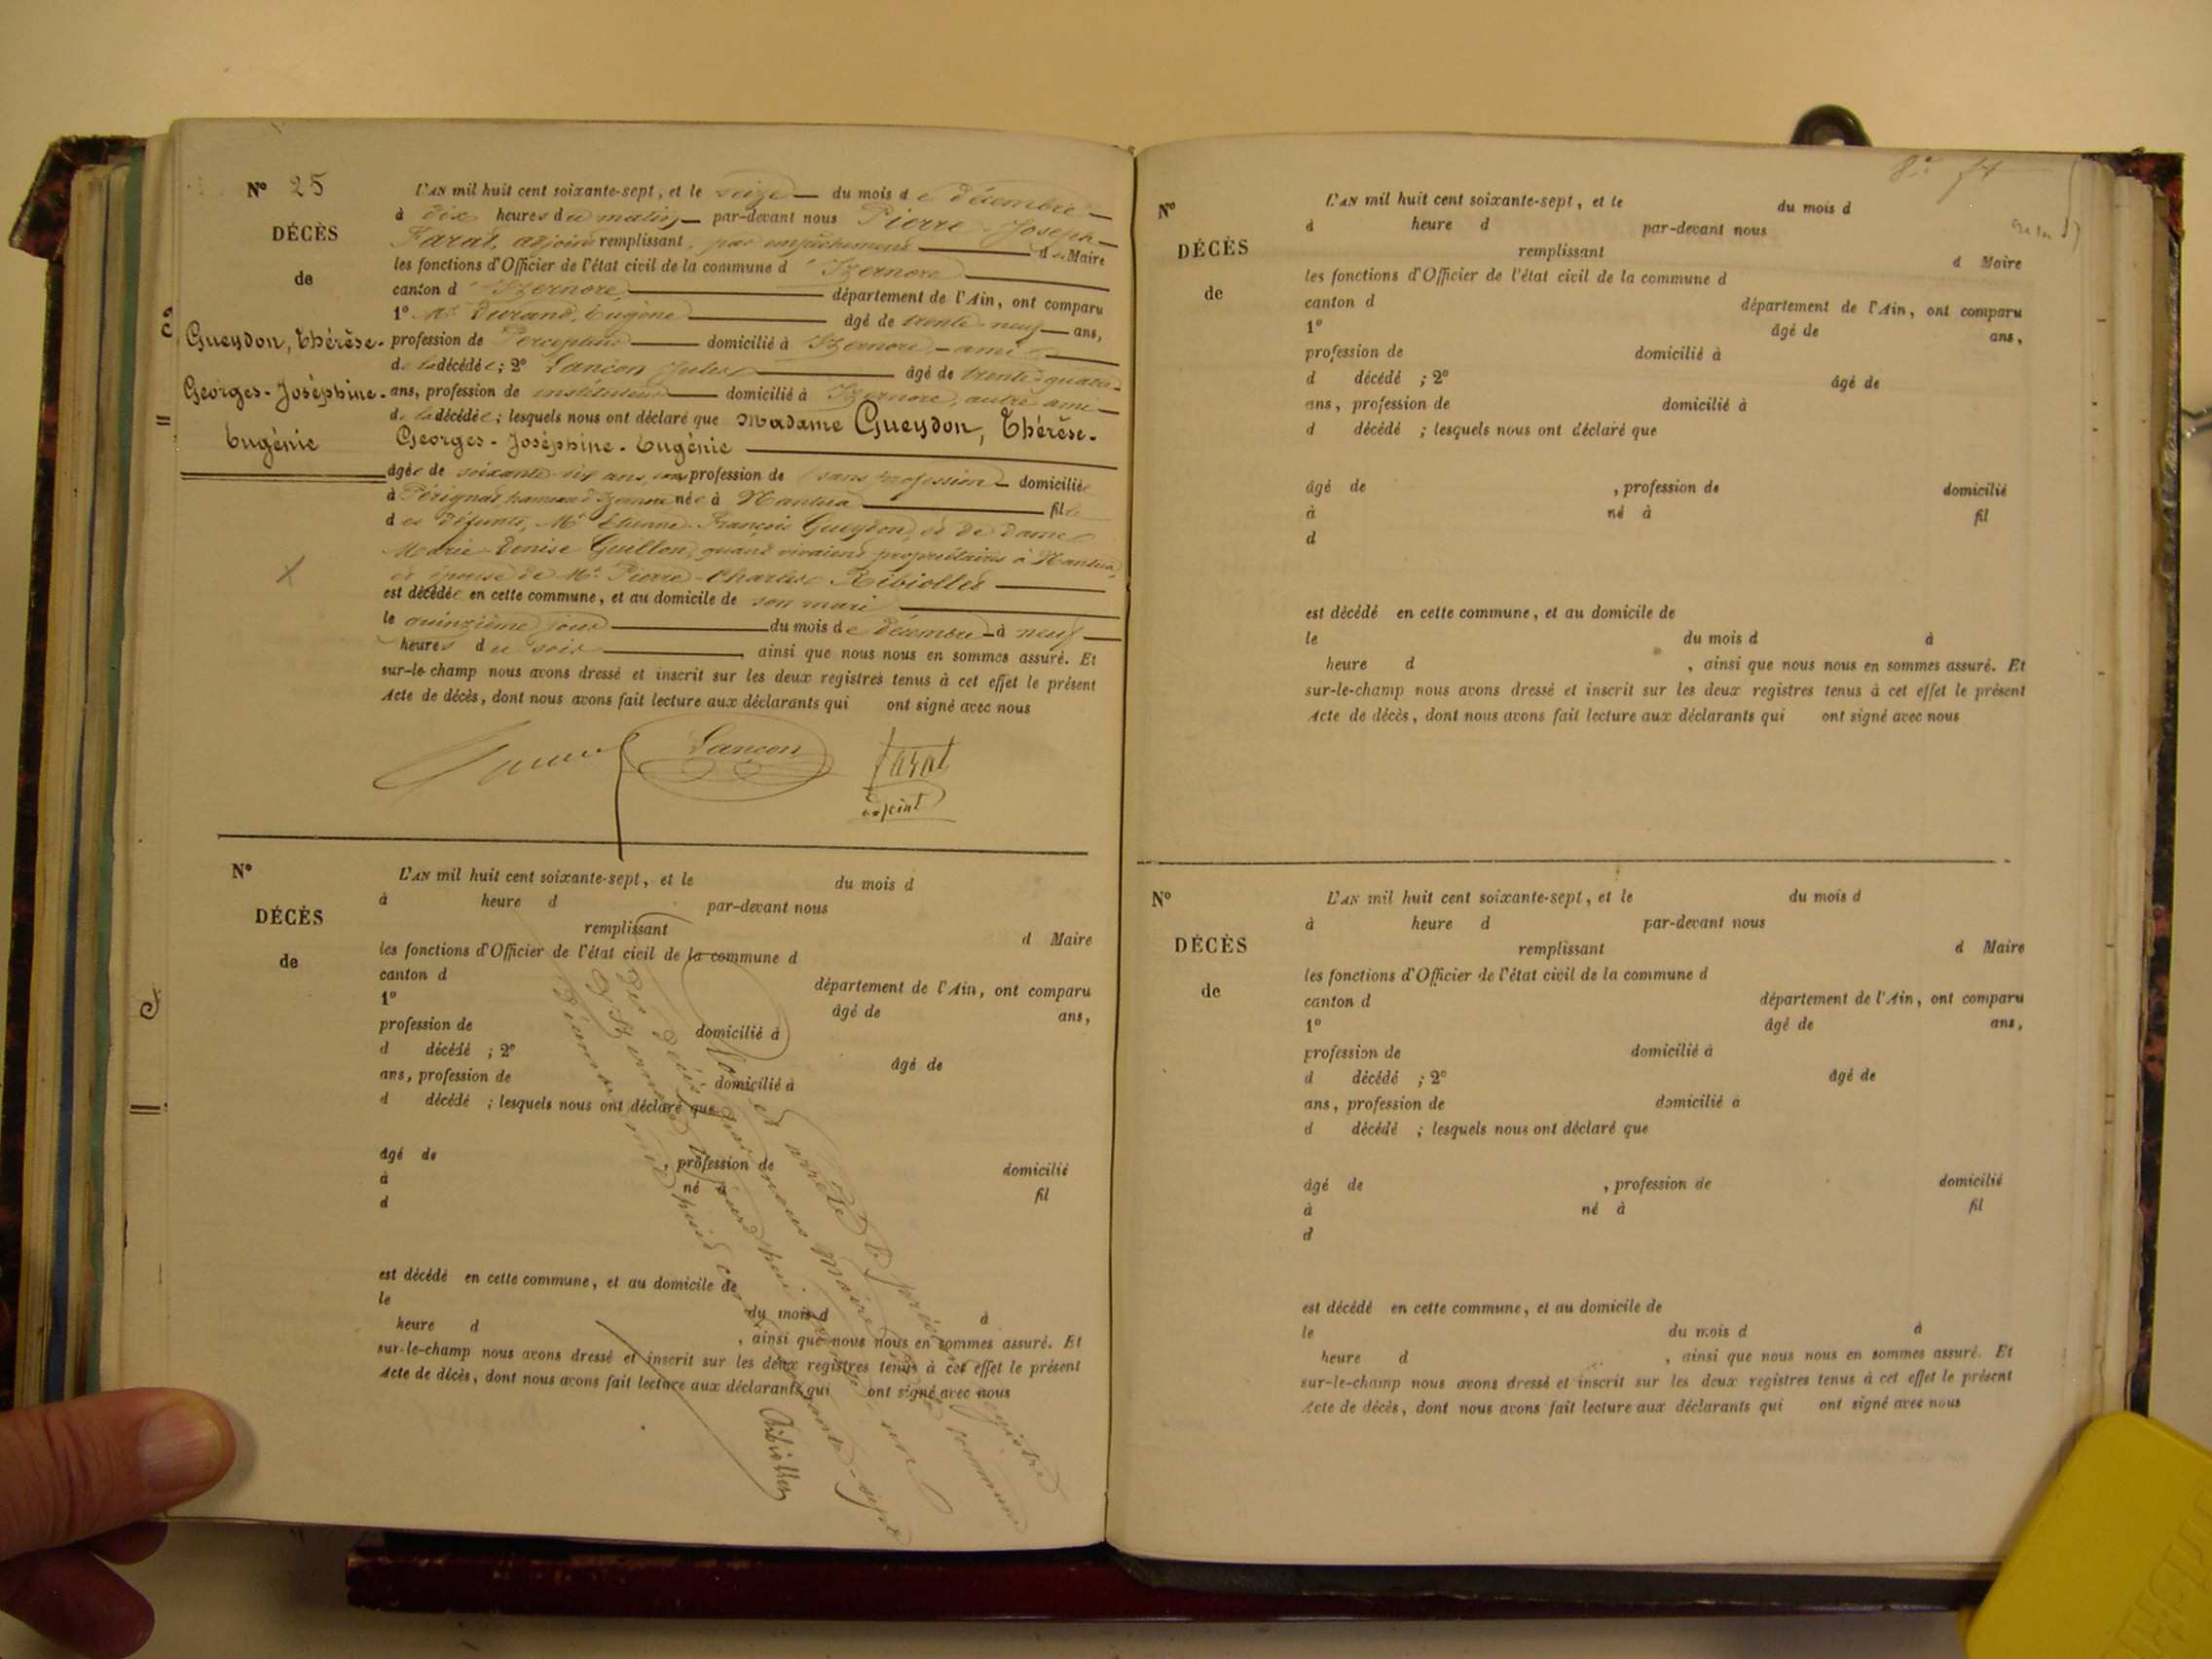 N° 25
DÉCÈS
de
Gueydon, Thérèse-
Georges-Joséphine-
Eugénie
L'AN mil huit cent soixante-sept, et le seize du mois de Décembre
à dix heures du matin par-devant nous Pierre-Joseph
Farat, adjoint remplissant, par empêchement du Maire
les fonctions d'Officier de l'état civil de la commune d'Izernore
canton d'Izernore, département de l'Ain, ont comparu
1° Mr Durand, Eugène âgé de trente-neuf ans,
profession de Percepteur domicilié à Izernore, ami
de la décédée ; 2° Lançon Jules âgé de trente-quatre
ans, profession de instituteur domicilié à Izernore, autre ami
de la décédée ; lesquels nous ont déclaré que Madame Gueydon, Thérèse-
Georges-Joséphine-Eugénie
âgée de soixante-six ans, profession de sans profession domiciliée
à Pérignat hameau d'Izernore née à Nantua fille
des défunts, Mr Etienne-François Gueydon, et de Dame
Marie-Denise Guillon, quand vivaient propriétaires à Nantua,
et épouse de Mr Pierre-Charles Ribiollet
est décédée en cette commune, et au domicile de son mari
le quinzième jour du mois de Décembre à neuf
heures du soir, ainsi que nous nous en sommes assuré. Et
sur-le-champ nous avons dressé et inscrit sur les deux registres tenus à cet effet le présent
Acte de décès, dont nous avons fait lecture aux déclarants qui ont signé avec nous
Lançon
Farat
adjoint
N°
DÉCÈS
de
L'AN mil huit cent soixante-sept, et le du mois d
à heure d par-devant nous
remplissant d Maire
les fonctions d'Officier de l'état civil de la commune d
canton d département de l'Ain, ont comparu
1° âgé de ans,
profession de domicilié à
d décédé ; 2° âgé de
ans, profession de domicilié à
d décédé ; lesquels nous ont déclaré que
âgé de , profession de domicilié
à né à fil
d
est décédé en cette commune, et au domicile de
le du mois d à
heure d , ainsi que nous nous en sommes assuré. Et
sur-le-champ nous avons dressé et inscrit sur les deux registres tenus à cet effet le présent
Acte de décès, dont nous avons fait lecture aux déclarants qui ont signé avec nous
Clos et arrêté le présent registre
des décès par nous Maire de la commune
d'Izernore le jourd'hui
Décembre mil huit cent soixante-sept
Ribiollet
N°
DÉCÈS
de
L'AN mil huit cent soixante-sept, et le du mois d
à heure d par-devant nous
remplissant d Maire
les fonctions d'Officier de l'état civil de la commune d
canton d département de l'Ain, ont comparu
1° âgé de ans,
profession de domicilié à
d décédé ; 2° âgé de
ans, profession de domicilié à
d décédé ; lesquels nous ont déclaré que
âgé de , profession de domicilié
à né à fil
d
est décédé en cette commune, et au domicile de
le du mois d à
heure d , ainsi que nous nous en sommes assuré. Et
sur-le-champ nous avons dressé et inscrit sur les deux registres tenus à cet effet le présent
Acte de décès, dont nous avons fait lecture aux déclarants qui ont signé avec nous
N°
DÉCÈS
de
L'AN mil huit cent soixante-sept, et le du mois d
à heure d par-devant nous
remplissant d Maire
les fonctions d'Officier de l'état civil de la commune d
canton d département de l'Ain, ont comparu
1° âgé de ans,
profession de domicilié à
d décédé ; 2° âgé de
ans, profession de domicilié à
d décédé ; lesquels nous ont déclaré que
âgé de , profession de domicilié
à né à fil
d
est décédé en cette commune, et au domicile de
le du mois d à
heure d , ainsi que nous nous en sommes assuré. Et
sur-le-champ nous avons dressé et inscrit sur les deux registres tenus à cet effet le présent
Acte de décès, dont nous avons fait lecture aux déclarants qui ont signé avec nous